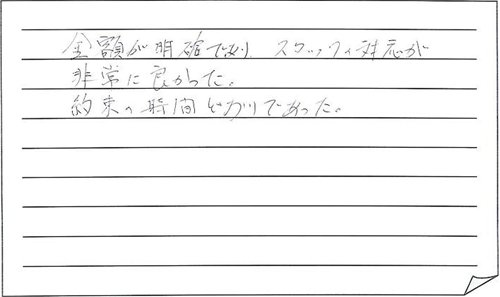 金額が明確であり スタッフィ対応が
非常に良かった。
約束の時間どおりであった。